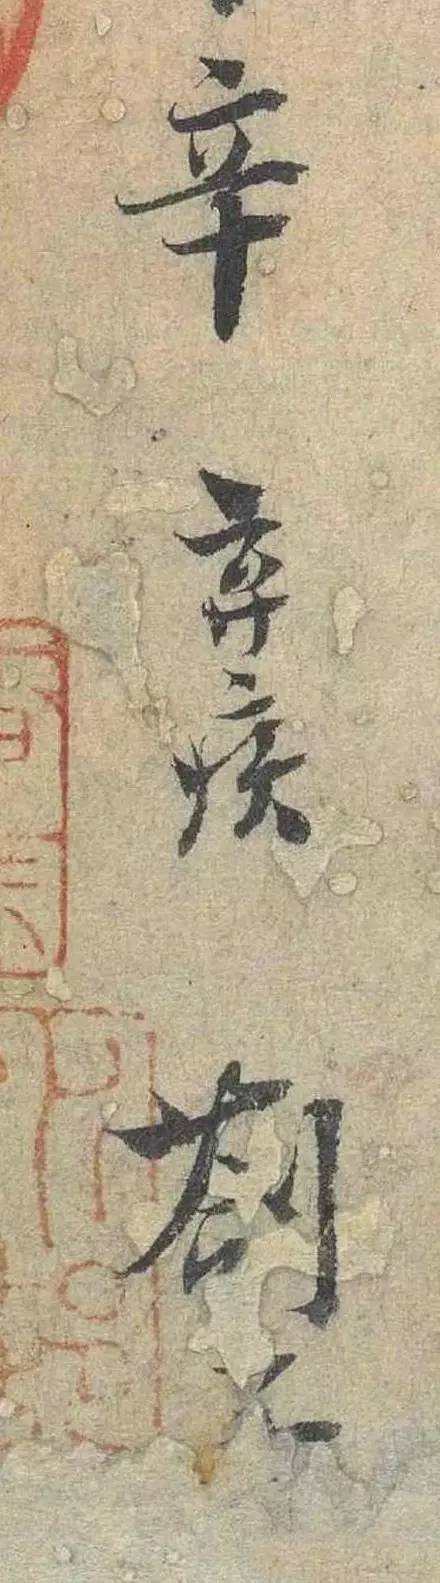 辛棄疾劄子